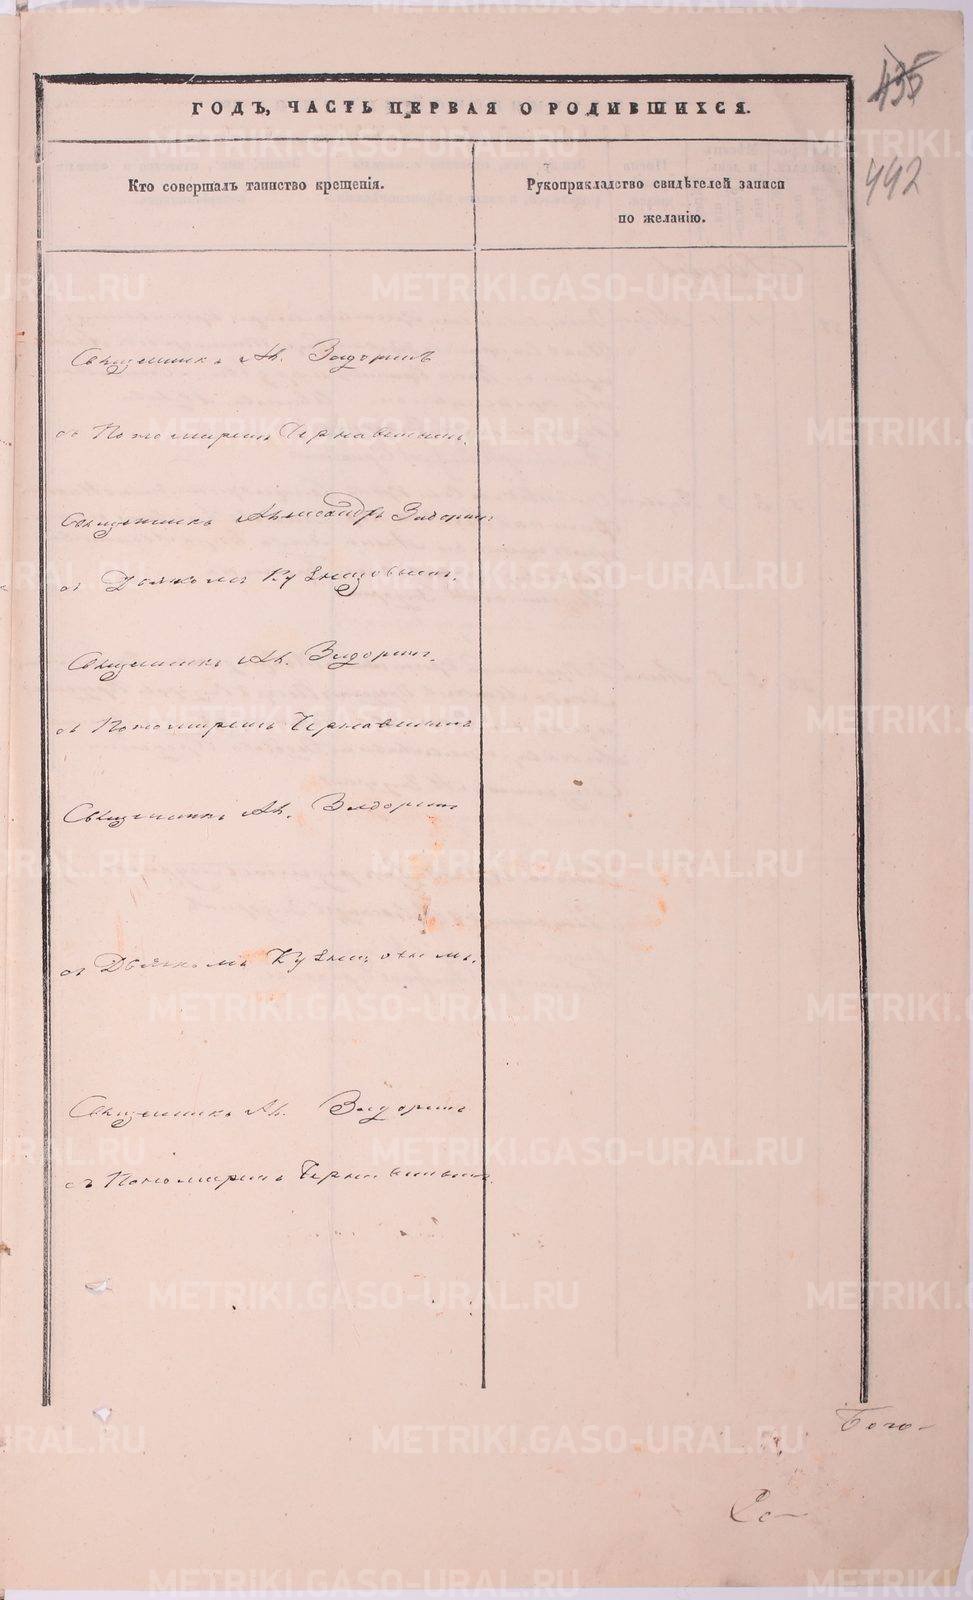 435
ГОДЪ, ЧАСТЬ ПЕРВАЯ О РОДИВШИХСЯ.
442
Кто совершалъ таинство крещенія.
Рукоприкладство свидѣтелей записи
по желанію.
Священникъ Ал. Задоринъ
съ Пономаремъ Чернавинымъ.
Священникъ Александръ Задоринъ
съ Дьякомъ Кузнецовымъ.
Священникъ Ал. Задоринъ.
съ Пономаремъ Чернавинымъ
Священникъ Ал. Задоринъ
съ Дьячкомъ Кузнецовымъ.
Священникъ Ал. Задоринъ
съ Пономаремъ Чернавинымъ.
Бого-
METRIKI.GASO-URAL.RU